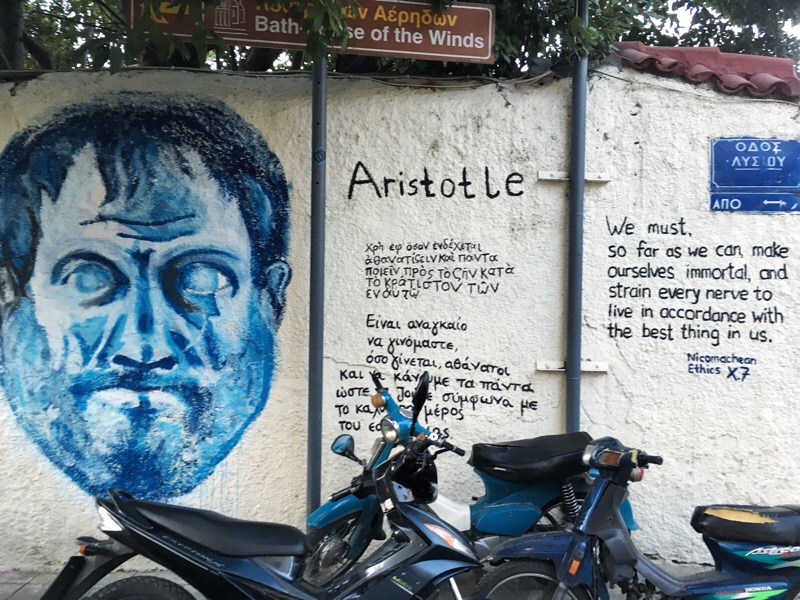 Αέρηδων
of the Winds
Aristotle
χρὴ ἐφ ὅσον ἐνδέχεται
ἀθανατίζειν καὶ πάντα
ποιεῖν πρὸς τὸ ζῆν κατὰ
τὸ κράτιστον τῶν
ἐν αὑτῷ
Είναι αναγκαίο
να γινόμαστε,
όσο γίνεται, αθάνατοι
και να κάνουμε τα πάντα
ώστε σύμφωνα με
το μέρος
του
We must,
so far as we can, make
ourselves immortal, and
strain every nerve to
live in accordance with
the best thing in us.
Nicomachean
Ethics X.7
ΟΔΟΣ
ΛΥΣΙΟΥ
ΑΠΟ
HONDA